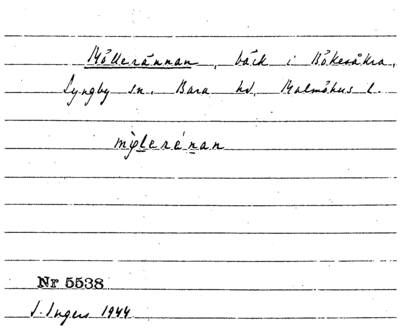 Möllerännan, bäck i Bökesåkra,
Lyngby sn, Bara hd, Malmöhus l.
mø̀lerénan
Nr 5538
I. Ingers 1944